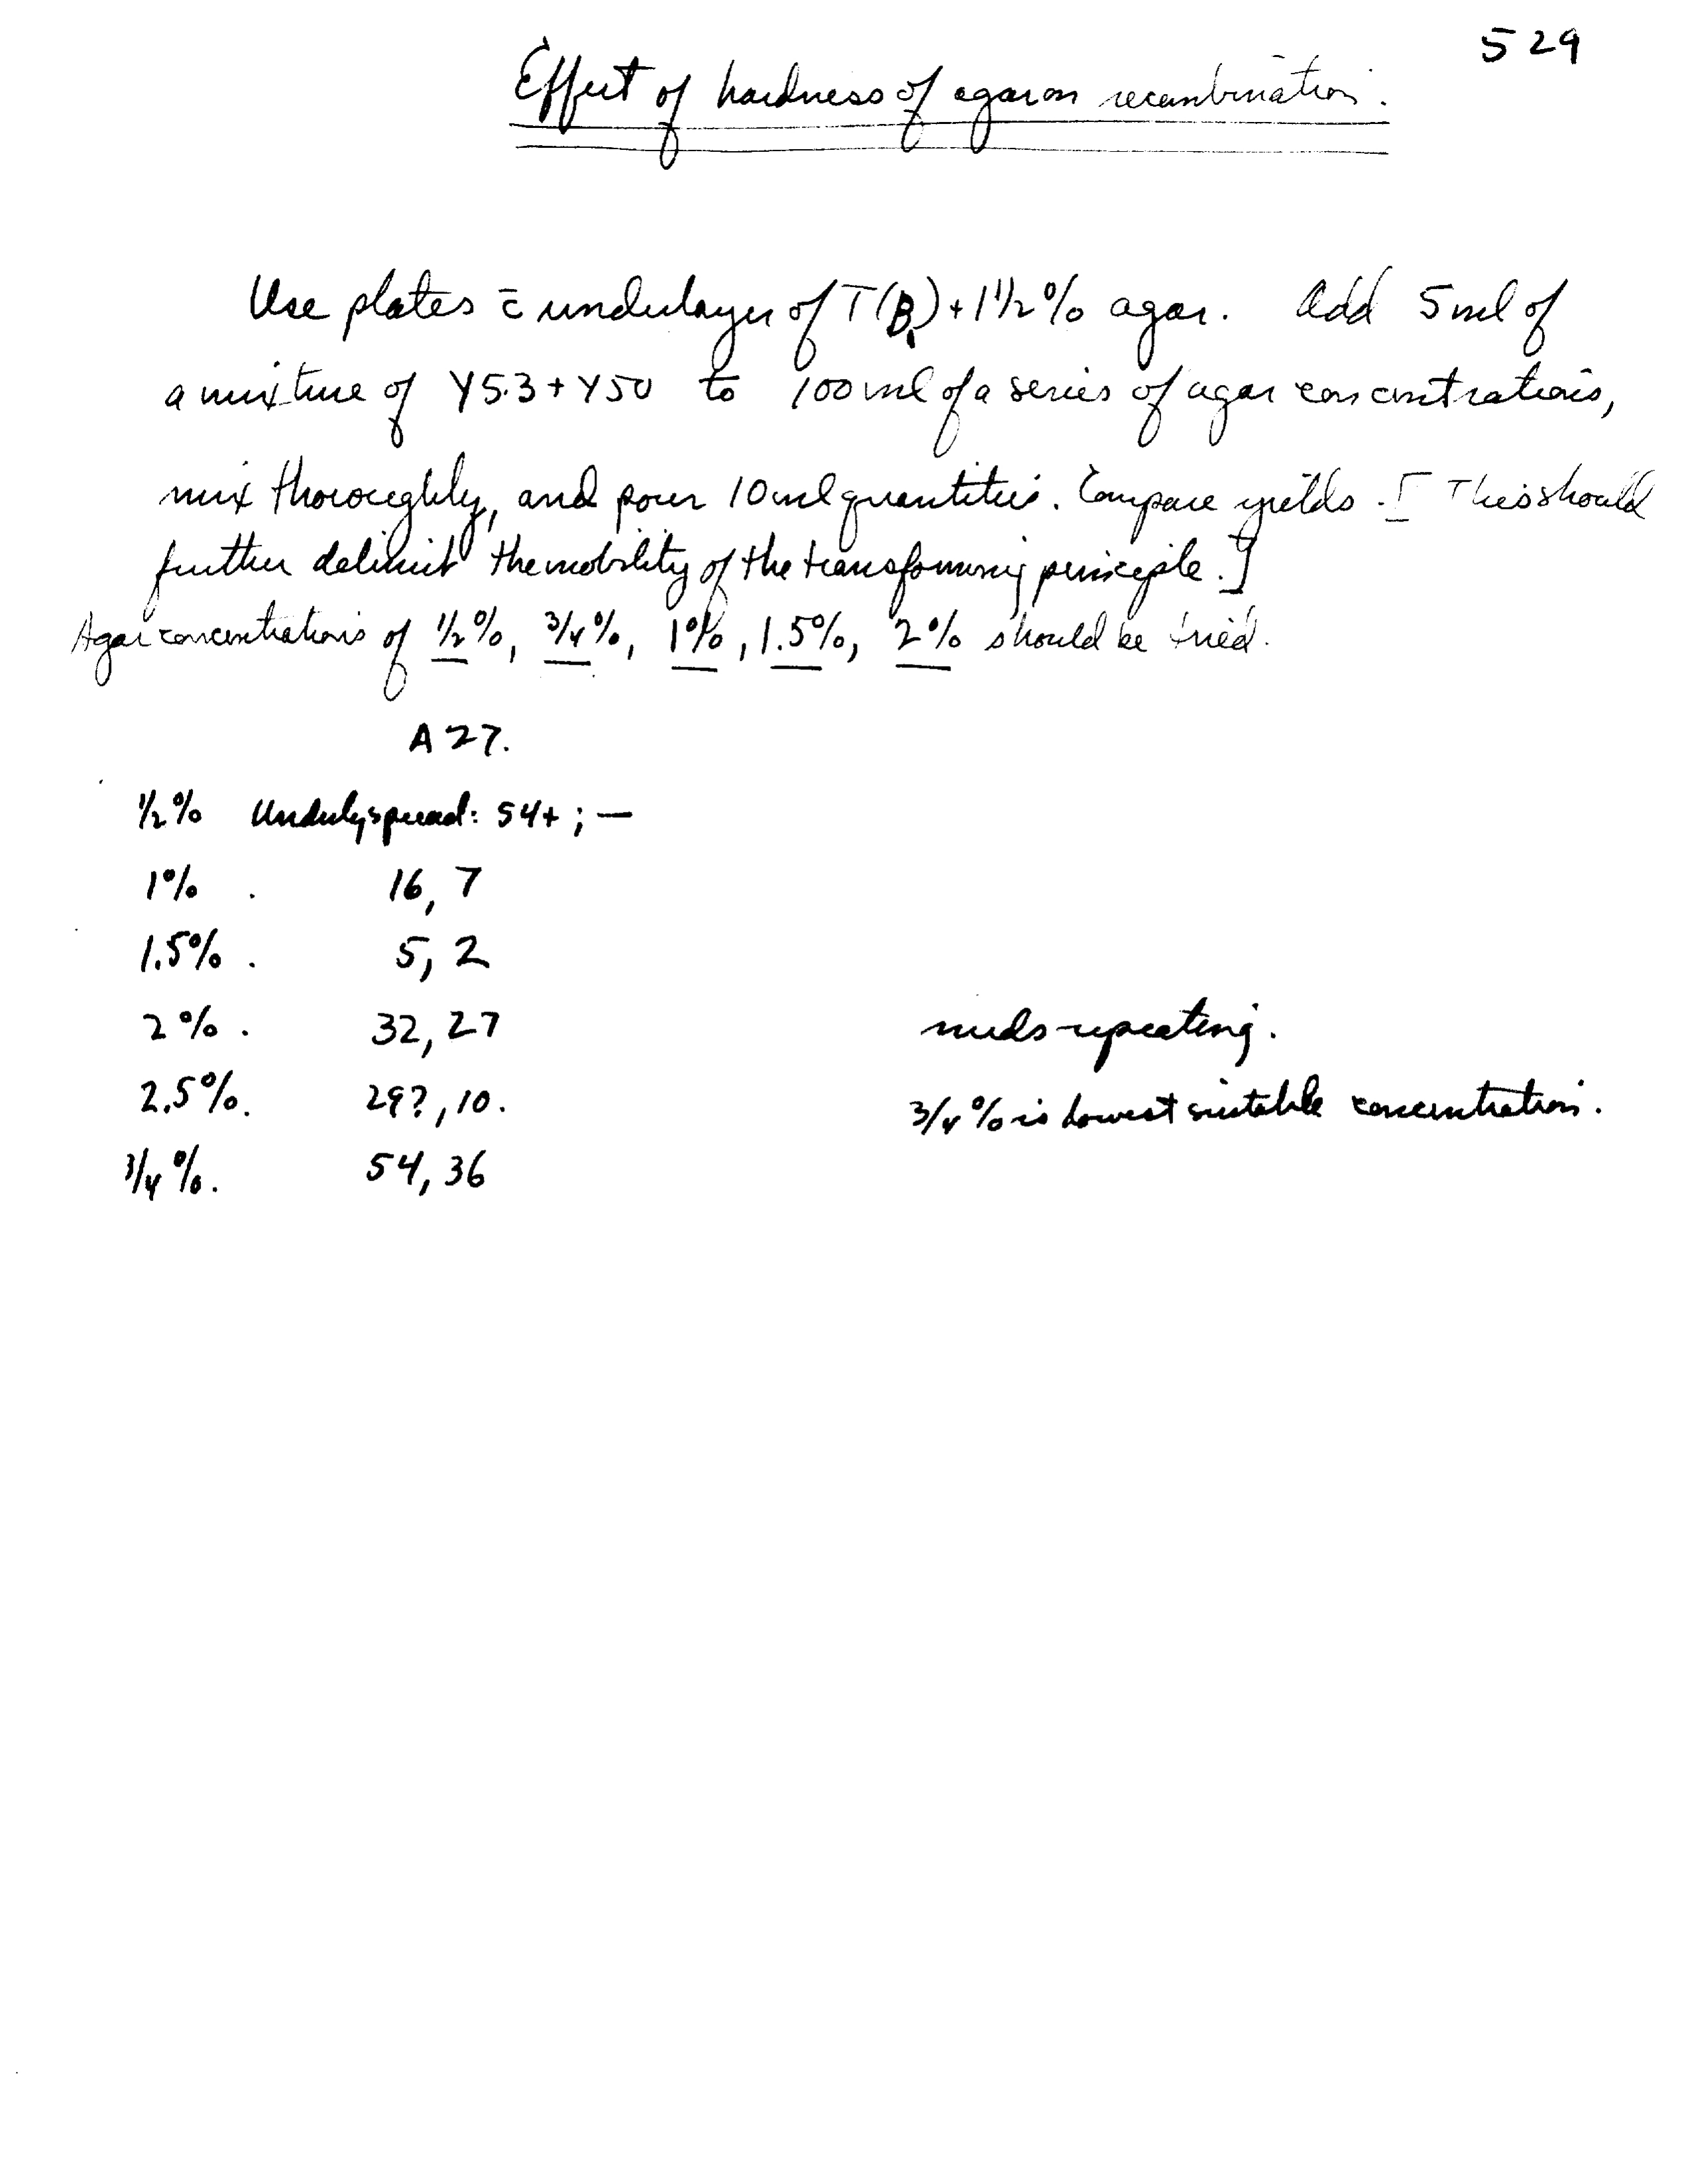 529
Effect of hardness of agar on recombination.
Use plates c̄ underlayer of T(B₁) + 1 1/2 % agar. Add 5 ml of
a mixture of Y53 + Y50 to 100 ml of a series of agar concentrations,
mix thoroughly, and pour 10 ml quantities. Compare yields. [ This should
further delimit the mobility of the transforming principle. ]
Agar concentrations of 1/2 %, 3/4 %, 1%, 1.5%, 2% should be tried.
A 27.
1/2 % Unduly spread: 54+ ; —
1% . 16, 7
1.5% . 5, 2
2% . 32, 27
needs repeating.
2.5%. 29?, 10.
3/4 % is lowest suitable concentration.
3/4 %. 54, 36